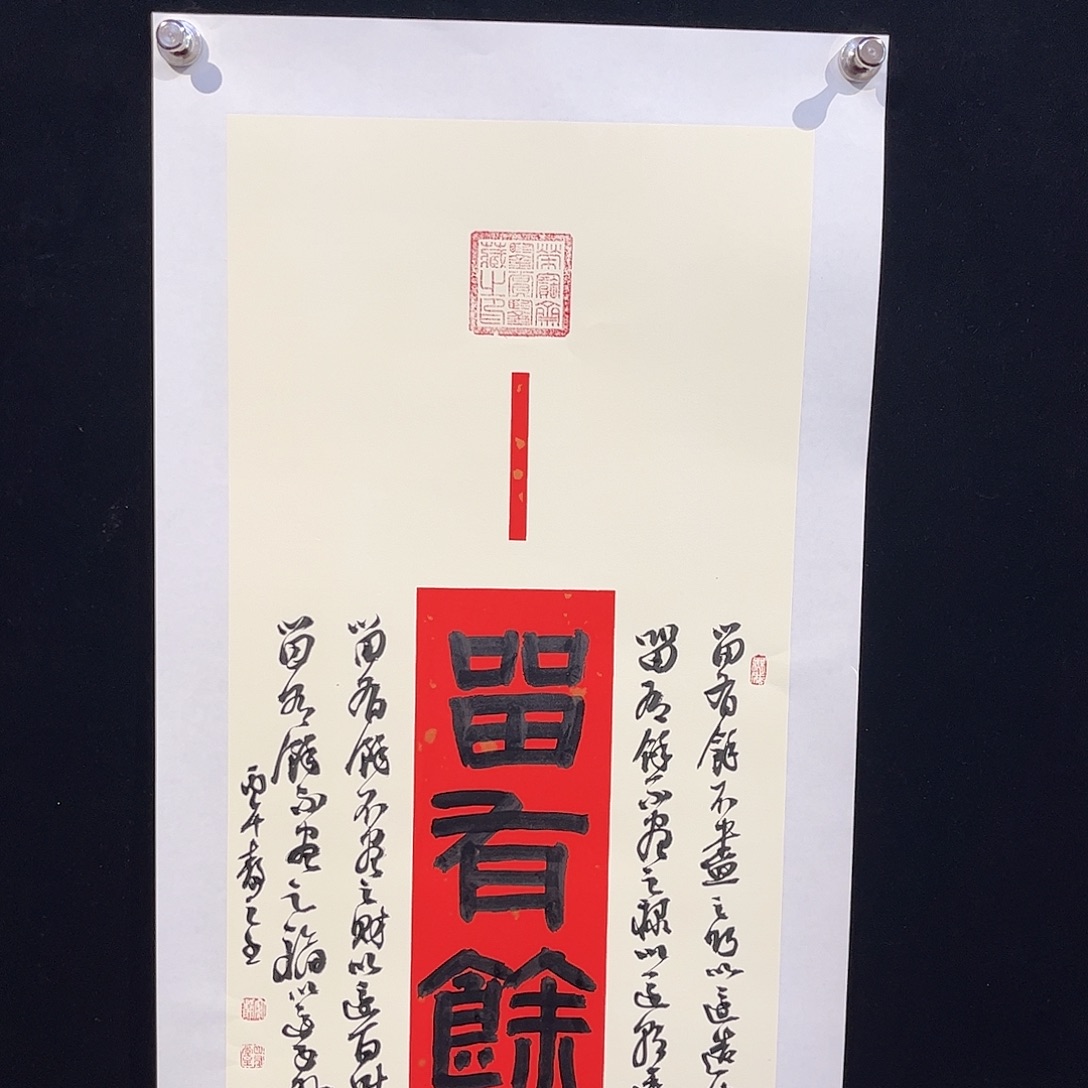 榮寶齋
藏之印
留有餘不盡之巧以還造
留有餘不盡之祿以還朝
留有餘
留有餘不盡之財以還百
留有餘不盡之福以還子
丙午